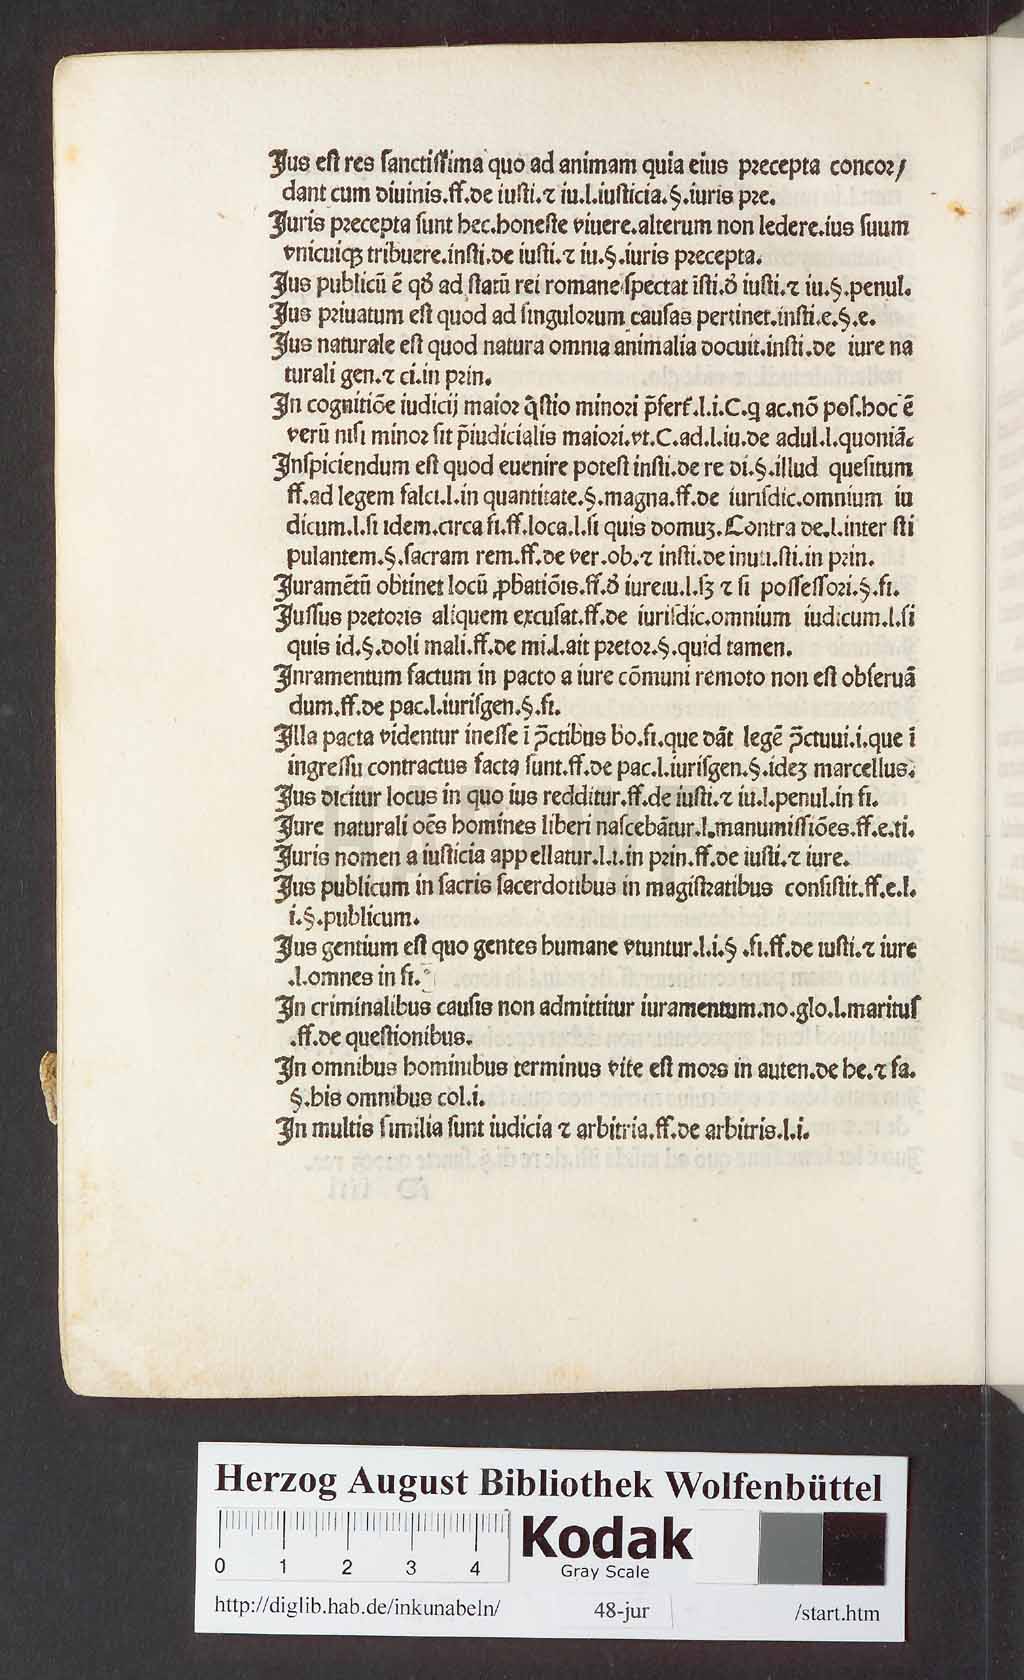 Jus est res sanctissima quo ad animam quia eius precepta concor/
dant cum diuinis.ff.de iusti.⁊ iu.l.iusticia.§.iuris pre.
Juris precepta sunt hec.honeste viuere.alterum non ledere.ius suum
vnicuiqꝫ tribuere.insti.de iusti.⁊ iu.§.iuris precepta.
Jus publicũ ẽ qđ ad statũ rei romane spectat ĩsti.đ iusti.⁊ iu.§.penul.
Jus priuatum est quod ad singulorum causas pertinet.insti.e.§.e.
Jus naturale est quod natura omnia animalia docuit.insti.de iure na
turali gen.⁊ ci.in prin.
In cognitiõe iudicij maior q̃stio minori p̃fert̃.l.i.C.q ac.nõ pos.hoc ẽ
verũ nisi minor sit p̃iudicialis maiori.vt.C.ad.l.iu.de adul.l.quoniã.
Inspiciendum est quod euenire potest insti.de re di.§.illud quesitum
ff.ad legem falci.l.in quantitate.§.magna.ff.de iurisdic.omnium iu
dicum.l.si idem.circa fi.ff.loca.l.si quis domuʒ.Contra de.l.inter sti
pulantem.§.sacram rem.ff.de ver.ob.⁊ insti.de inuti.sti.in prin.
Juramẽtũ obtinet locũ ꝓbatiõis.ff.đ iureiu.l.sʒ ⁊ si possessori.§.fi.
Jussus pretoris aliquem excusat.ff.de iurisdic.omnium iudicum.l.si
quis id.§.doli mali.ff.de mi.l.ait pretor.§.quid tamen.
Inramentum factum in pacto a iure cõmuni remoto non est obseruã
dum.ff.de pac.l.iurisgen.§.fi.
Illa pacta videntur inesse ĩ p̃ctibus bo.fi.que dãt legẽ p̃ctuui.i.que ĩ
ingressu contractus facta sunt.ff.de pac.l.iurisgen.§.ideʒ marcellus.
Jus dicitur locus in quo ius redditur.ff.de iusti.⁊ iu.l.penul.in fi.
Jure naturali oẽs homines liberi nascebãtur.l.manumissiões.ff.e.ti.
Juris nomen a iusticia appellatur.l.i.in prin.ff.de iusti.⁊ iure.
Jus publicum in sacris sacerdotibus in magistratibus consistit.ff.e.l.
i.§.publicum.
Jus gentium est quo gentes humane vtuntur.l.i.§ .fi.ff.de iusti.⁊ iure
.l.omnes in fi.
In criminalibus causis non admittitur iuramentum.no.glo.l.maritus
.ff.de questionibus.
In omnibus hominibus terminus vite est mors in auten.de he.⁊ fa.
§.his omnibus col.i.
In multis similia sunt iudicia ⁊ arbitria.ff.de arbitris.l.i.
HAB-WF
Herzog August Bibliothek Wolfenbüttel
0 1 2 3 4
Kodak
Gray Scale
http://diglib.hab.de/inkunabeln/ 48-jur /start.htm